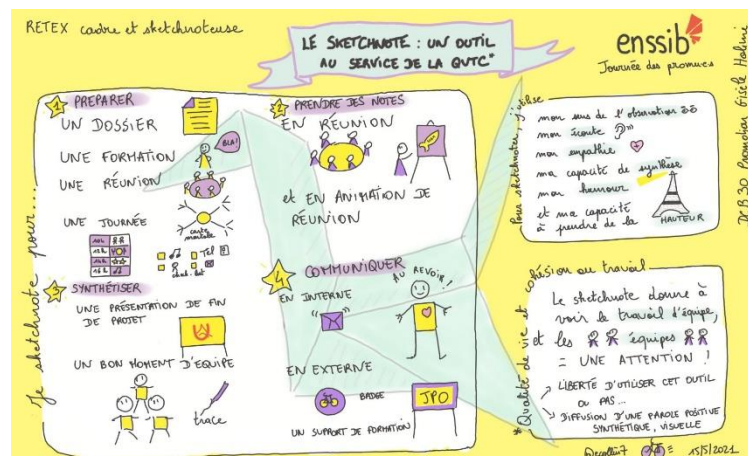 RETEX cadre et sketchnoteuse
LE SKETCHNOTE : UN OUTIL
AU SERVICE DE LA QVTC*
enssib
Journée des promues
DCB 30 Promotion Gisèle Halimi
Je sketchnote pour...
1 PREPARER
UN DOSSIER
UNE FORMATION
BLA!
UNE RÉUNION
UNE JOURNÉE
carte
mentale
10h
12h
14h
16h
Tel
2 PRENDRE DES NOTES
EN RÉUNION
et EN ANIMATION DE
RÉUNION
3 SYNTHÉTISER
UNE PRÉSENTATION DE FIN
DE PROJET
UN BON MOMENT D'EQUIPE
trace
4 COMMUNIQUER
EN INTERNE
AU REVOIR!
EN EXTERNE
BADGE
JPO
UN SUPPORT DE FORMATION
Pour sketchnoter, j'utilise
mon sens de l'observation
mon écoute
mon empathie
ma capacité de synthèse
mon humour
et ma capacité
à prendre de la
HAUTEUR
*Qualité de vie et cohésion au travail
Le sketchnote donne à
voir le travail d'équipe,
et les équipes
= UNE ATTENTION !
LIBERTÉ D'UTILISER CET OUTIL
OU PAS...
DIFFUSION D'UNE PAROLE POSITIVE
SYNTHÉTIQUE, VISUELLE
15/5/2021